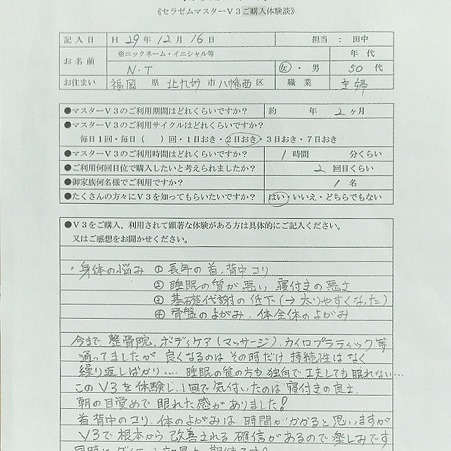 《セラゼムマスターV3ご購入体験談》
記入日 H 29年 12月 16日 担当：田中
お名前 ※ニックネーム・イニシャル等 年代
N・T 女・男 50代
お住まい 福岡県 北九州市 八幡西区 職業 主婦
●マスターV3のご利用期間はどれくらいですか？ 約 年 2ヶ月
●マスターV3のご利用サイクルはどれくらいですか？
毎日1回・毎日( )回・1日おき・2日おき・3日おき・7日おき
●マスターV3のご利用時間はどれくらいですか？ 1時間 分くらい
●ご利用何回目位で購入したいと考えられましたか？ 2 回目くらい
●御家族何名様でご利用ですか？ 1名
●たくさんの方々にV3を知ってもらいたいですか？ はい・いいえ・どちらでもない
●V3をご購入、利用されて顕著な体験がある方は具体的にご記入ください。
又はご感想をお聞かせください。
・身体の悩み ① 長年の首、背中コリ
② 睡眠の質が悪い、寝付きの悪さ
③ 基礎代謝の低下(→太りやすくなった)
④ 骨盤のよがみ、体全体のよがみ
今まで 整骨院、ボディケア(マッサージ)、カイロプラティック等
通ってましたが 良くなるのは その時だけ 持続性はなく
繰り返しばかり… 睡眠の質の方も 独自で工夫しても眠れない…
このV3を体験し、1回で気付いたのは 寝付きの良さ、
朝の目覚めで 眠れた感がありました！
首背中のコリ、体のよがみは 時間がかかると思いますが
V3で根本から 改善される 確信があるので 楽しみです